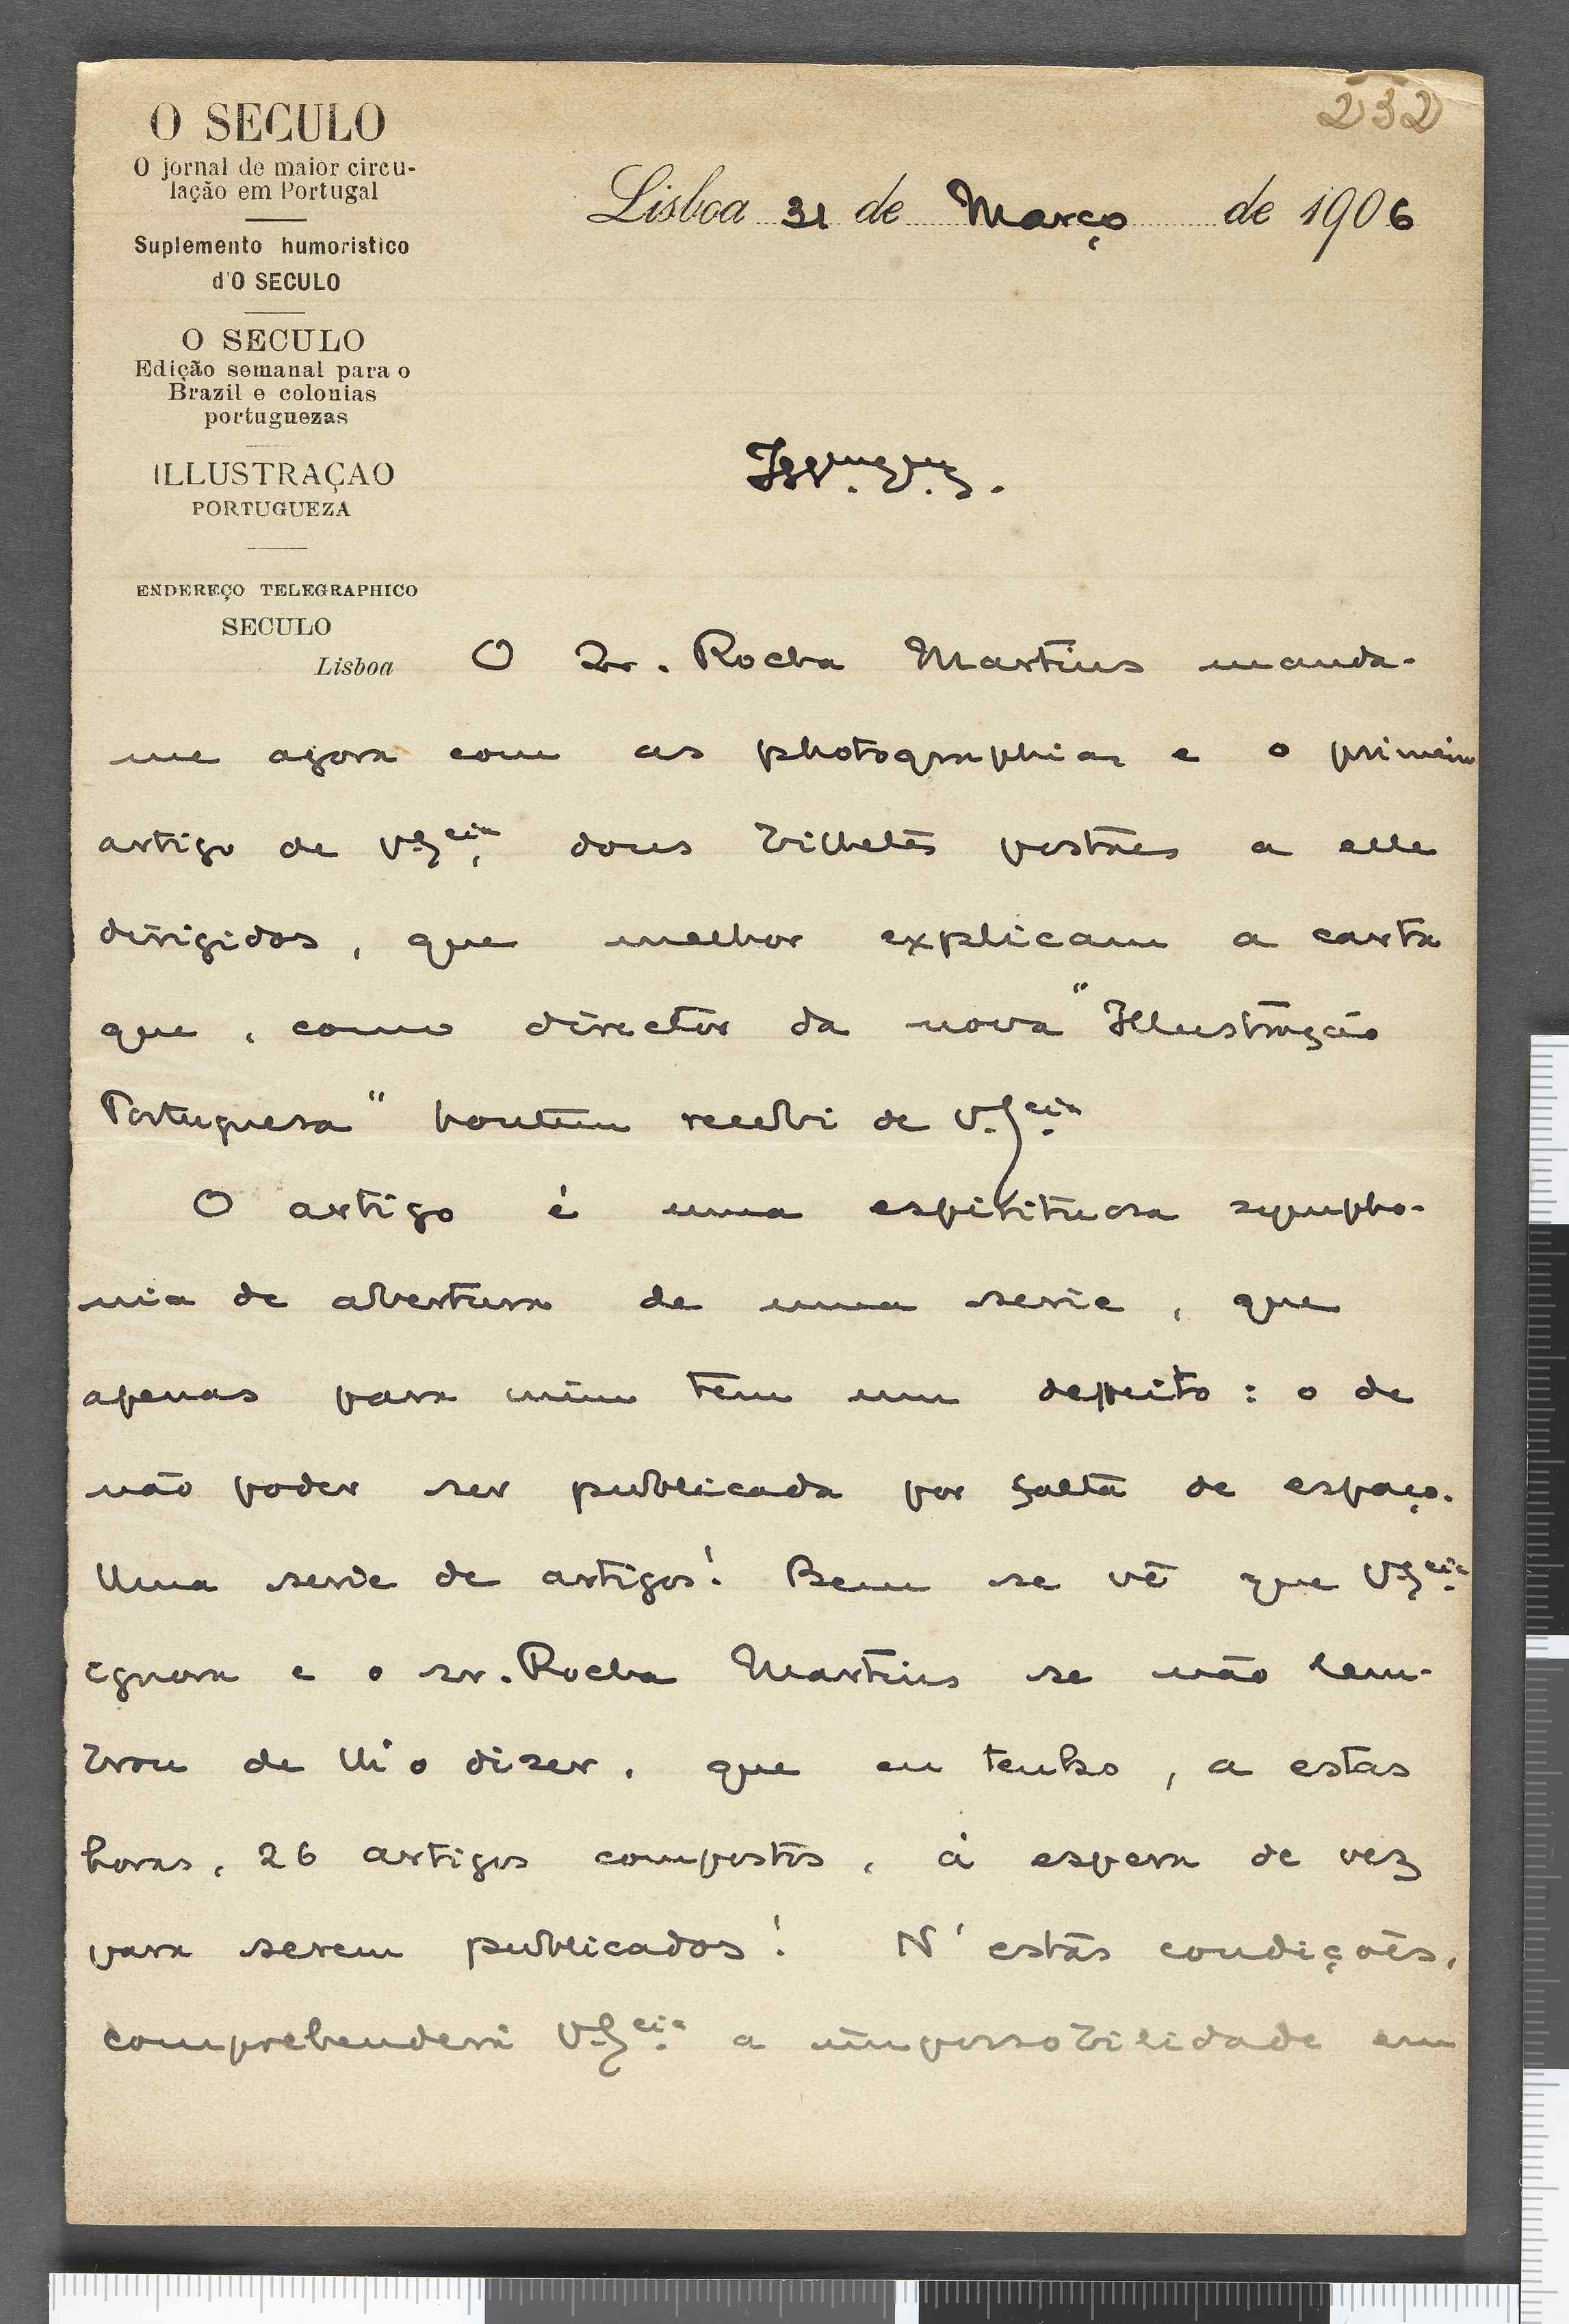 232
O SECULO
O jornal de maior circu-
lação em Portugal
Suplemento humoristico
d'O SECULO
O SECULO
Edição semanal para o
Brazil e colonias
portuguezas
ILLUSTRAÇAO
PORTUGUEZA
ENDEREÇO TELEGRAPHICO
SECULO
Lisboa
Lisboa 31 de Março de 1906
O Sr. Rocha Martins manda-
me agora com as photographias e o primeiro
artigo de V. Ex.cia, dous bilhetes postaes a elle
dirigidos, que melhor explicam a carta
que, como director da nova "Illustração
Portuguesa" hontem recebi de V. Ex.cia
O artigo é uma espirituosa sympho-
nia de abertura de uma serie, que
apenas para mim tem um defeito: o de
não poder ser publicada por falta de espaço.
Uma serie de artigos! Bem se vê que V. Ex.cia
ignora e o sr. Rocha Martins se não lem-
brou de lh'o dizer, que eu tenho, a estas
horas, 26 artigos compostos, á espera de vez
para serem publicados! N'estas condições,
comprehenderá V. Ex.cia a impossobilidade em